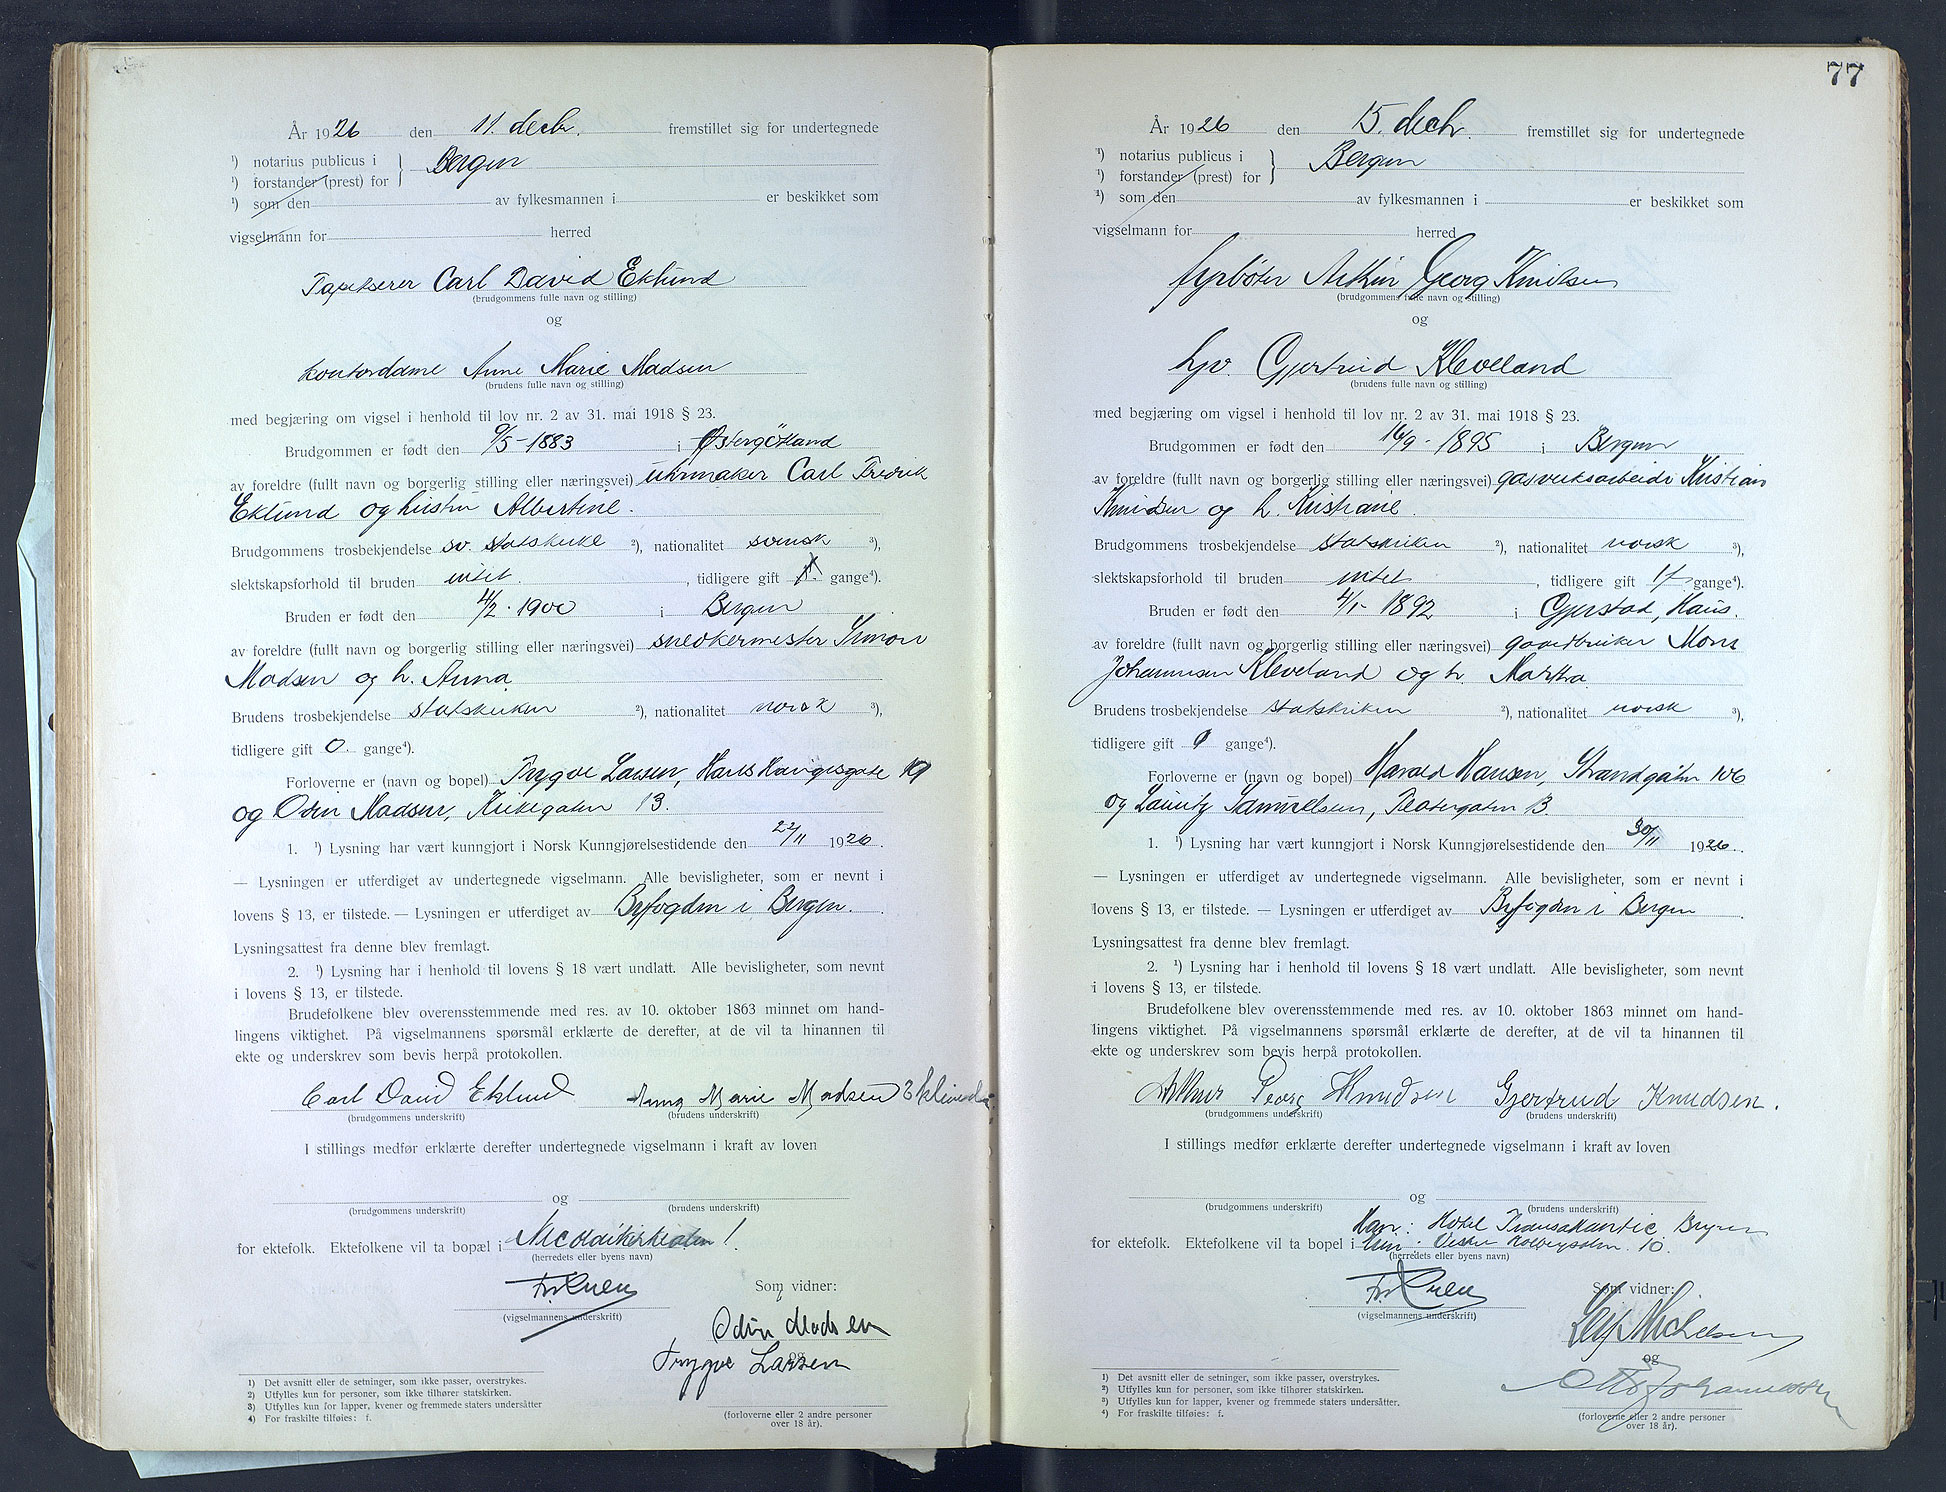 År 1926 den 11. decbr. fremstillet sig for undertegnede
¹) notarius publicus i } Bergen
¹) forstander (prest) for
¹) som den av fylkesmannen i er beskikket som
vigselmann for herred
Tapetserer Carl David Eklund
(brudgommens fulle navn og stilling)
og
kontordame Anna Marie Madsen
(brudens fulle navn og stilling)
med begjæring om vigsel i henhold til lov nr. 2 av 31. mai 1918 § 23.
Brudgommen er født den 9/5-1883 i Østergötland
av foreldre (fullt navn og borgerlig stilling eller næringsvei) uhrmaker Carl Fredrik
Eklund og hustru Albertine.
Brudgommens trosbekjendelse sv. statskirke ²), nationalitet svensk ³),
slektskapsforhold til bruden intet. , tidligere gift gange⁴).
Bruden er født den 4/2-1900 i Bergen
av foreldre (fullt navn og borgerlig stilling eller næringsvei) snedkermester Simon
Madsen og h. Anna
Brudens trosbekjendelse statskirken ²), nationalitet norsk ³),
tidligere gift 0. gange⁴).
Forloverne er (navn og bopel) Trygve Larsen, Hans Haugesgate 19
og Odin Madsen, Kirkegaten 13.
1. ¹) Lysning har vært kunngjort i Norsk Kunngjørelsestidende den 22/11 1926.
— Lysningen er utferdiget av undertegnede vigselmann. Alle bevisligheter, som er nevnt i
lovens § 13, er tilstede. — Lysningen er utferdiget av Byfogden i Bergen.
Lysningsattest fra denne blev fremlagt.
2. ¹) Lysning har i henhold til lovens § 18 vært undlatt. Alle bevisligheter, som nevnt
i lovens § 13, er tilstede.
Brudefolkene blev overensstemmende med res. av 10. oktober 1863 minnet om hand-
lingens viktighet. På vigselmannens spørsmål erklærte de derefter, at de vil ta hinannen til
ekte og underskrev som bevis herpå protokollen.
Carl David Eklund Anna Marie Madsen Eklund
(brudgommens underskrift) (brudens underskrift)
I stillings medfør erklærte derefter undertegnede vigselmann i kraft av loven
og
(brudgommens underskrift) (brudens underskrift)
for ektefolk. Ektefolkene vil ta bopæl i
(herredets eller byens navn)
Som vidner:
(vigselmannens underskrift)
Odin Madsen
og
Trygve Larsen
(forloverne eller 2 andre personer
over 18 år).
¹) Det avsnitt eller de setninger, som ikke passer, overstrykes.
²) Utfylles kun for personer, som ikke tilhører statskirken.
³) Utfylles kun for lapper, kvener og fremmede staters undersåtter
⁴) For fraskilte tilføies: f.
77
År 1926 den 15. decbr. fremstillet sig for undertegnede
¹) notarius publicus i } Bergen
¹) forstander (prest) for
¹) som den av fylkesmannen i er beskikket som
vigselmann for herred
fyrbøter Arthur Georg Knudsen
(brudgommens fulle navn og stilling)
og
hjv Gjertrud Kleveland
(brudens fulle navn og stilling)
med begjæring om vigsel i henhold til lov nr. 2 av 31. mai 1918 § 23.
Brudgommen er født den 16/9-1895 i Bergen
av foreldre (fullt navn og borgerlig stilling eller næringsvei) gasverksarbeider Kristian
Knudsen og h. Kristiane.
Brudgommens trosbekjendelse statskirken ²), nationalitet norsk ³),
slektskapsforhold til bruden intet , tidligere gift 1f gange⁴).
Bruden er født den 4/1-1892 i Gjerstad, Haus.
av foreldre (fullt navn og borgerlig stilling eller næringsvei) gaardbruker Mons
Johannesen Kleveland og h. Martha
Brudens trosbekjendelse statskirken ²), nationalitet norsk ³),
tidligere gift 0 gange⁴).
Forloverne er (navn og bopel) Harald Hansen, Strandgaten 106
og Lauritz Samuelsen, Teatergaten 13.
1. ¹) Lysning har vært kunngjort i Norsk Kunngjørelsestidende den 30/11 1926.
— Lysningen er utferdiget av undertegnede vigselmann. Alle bevisligheter, som er nevnt i
lovens § 13, er tilstede. — Lysningen er utferdiget av Byfogden i Bergen
Lysningsattest fra denne blev fremlagt.
2. ¹) Lysning har i henhold til lovens § 18 vært undlatt. Alle bevisligheter, som nevnt
i lovens § 13, er tilstede.
Brudefolkene blev overensstemmende med res. av 10. oktober 1863 minnet om hand-
lingens viktighet. På vigselmannens spørsmål erklærte de derefter, at de vil ta hinannen til
ekte og underskrev som bevis herpå protokollen.
Arthur Georg Knudsen Gjertrud Knudsen.
(brudgommens underskrift) (brudens underskrift)
I stillings medfør erklærte derefter undertegnede vigselmann i kraft av loven
og
(brudgommens underskrift) (brudens underskrift)
Han: Hotel Transatlantic, Bergen
for ektefolk. Ektefolkene vil ta bopel i Hun: Vestre Holbergsalm. 10.
(herredets eller byens navn)
Som vidner:
(vigselmannens underskrift)
Leif Michelsen
og
Otto Johannessen
(forloverne eller 2 andre personer
over 18 år).
¹) Det avsnitt eller de setninger, som ikke passer, overstrykes.
²) Utfylles kun for personer, som ikke tilhører statskirken.
³) Utfylles kun for lapper, kvener og fremmede staters undersåtter.
⁴) For fraskilte tilføies: f.